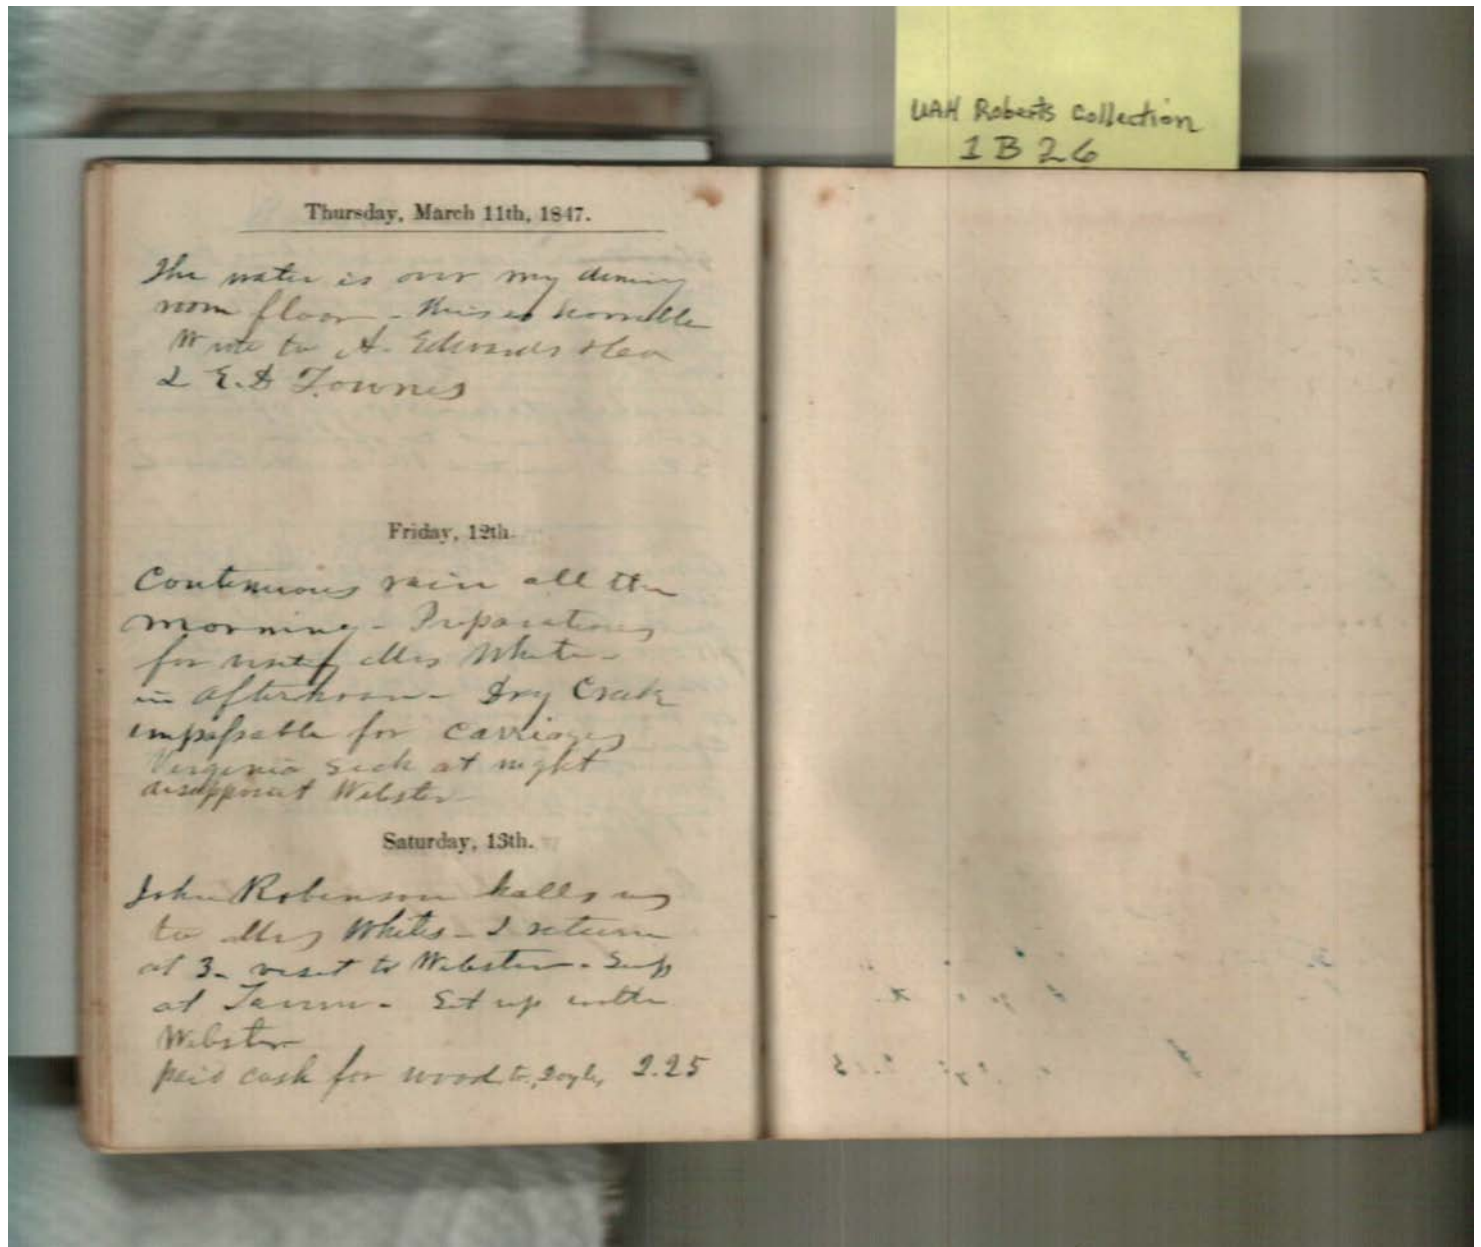 UAH Roberts Collection
1 B 26
Thursday, March 11th, 1847.
The water is over my dining
room floor - this is horrible
Wrote to A. Edwards
& E. D Townes
Friday, 12th.
Continuous rain all the
morning - Preparations
for visit Mrs White -
in afternoon - Dry Creek
impassable for carriages
Virginia sick at night
disappoint Webster
Saturday, 13th.
John Robinson us
to Mrs Whites - I return
at 3 - visit to Webster - Sup
at Tavern - Set up with
Webster
paid cash for wood to 2.25